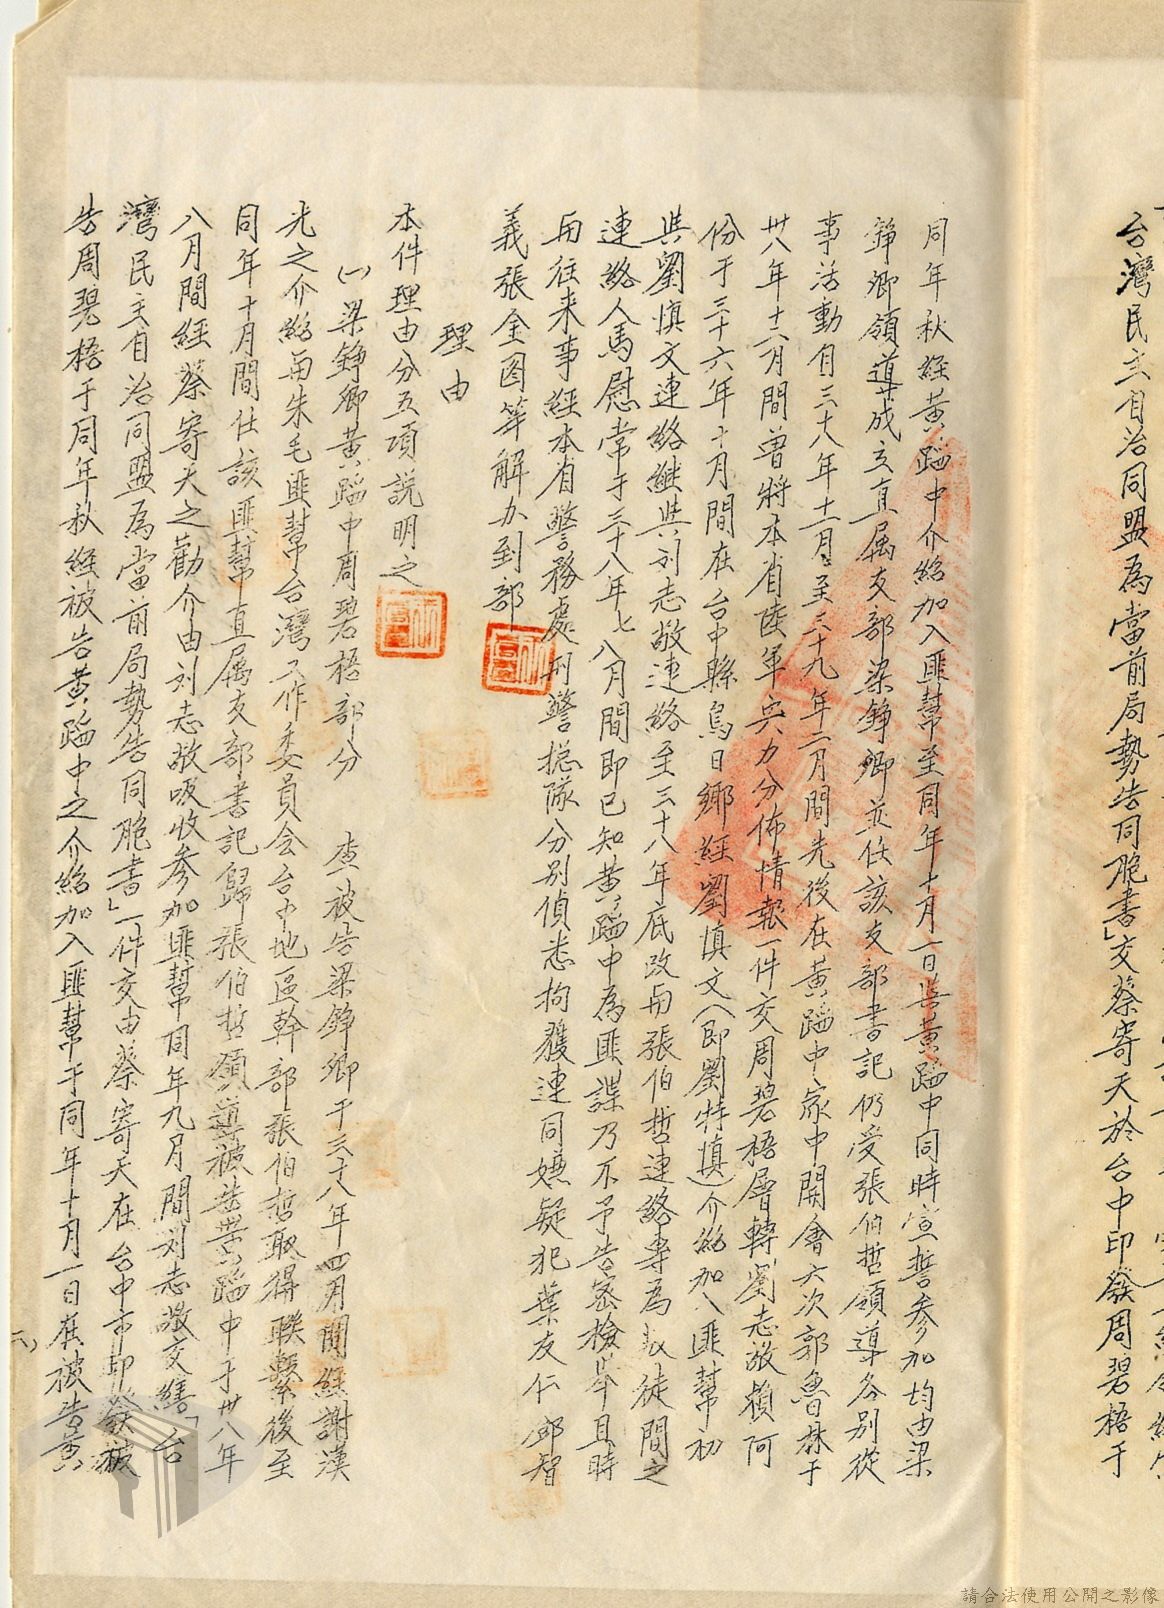 台灣民主自治同盟為當前局勢告同胞書」交蔡寄天於台中印發周碧梧于
同年秋經黃蹈中介紹加入匪幫至同年十月一日與黃蹈中同時宣誓參加均由梁
錚卿領導並成立直屬支部梁錚卿並任該支部書記仍受張伯哲領導各別從
事活動自三十八年十一月至三十九年二月間先後在黃蹈中家中開會六次郭魯林于
卅八年十二月間曾將本省陸軍兵力分佈情報一件交周碧梧層轉劉志敬賴阿
份于三十六年十月間在台中縣烏日鄉經劉慎文(即劉特慎)介紹加入匪幫初
與劉慎文連絡繼與刘志敬連絡至三十八年底改與張伯哲連絡專為奴徒間之
連絡人馬慰常于三十八年七八月間即已知黃蹈中為匪諜乃不予告密檢舉且時
與往來事經本省警務處刑警總隊分別偵悉拘獲連同嫌疑犯葉友仁邱智
義張金圖等解办到部
理由
本件理由分五項說明之
(一)梁錚卿黃蹈中周碧梧部分 查被告梁錚卿于三十八年四月間經謝漢
光之介紹與朱毛匪幫台灣工作委員会台中地區幹部張伯哲取得聯繫後至
同年十月間任該匪幫直屬支部書記歸張伯哲領導被告黃蹈中于卅八年
八月間經蔡寄天之勸介由刘志敬吸收參加匪幫同年九月間刘志敬交繕「台
灣民主自治同盟為當前局勢告同胞書」一件交由蔡寄天在台中市印發被
告周碧梧于同年秋經被告黃蹈中之介紹加入匪幫于同年十月一日在被告黃
六、
請合法使用公開之影像